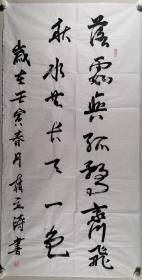 落霞与孤鹜齐飞
秋水共长天一色
岁在壬寅春月
书